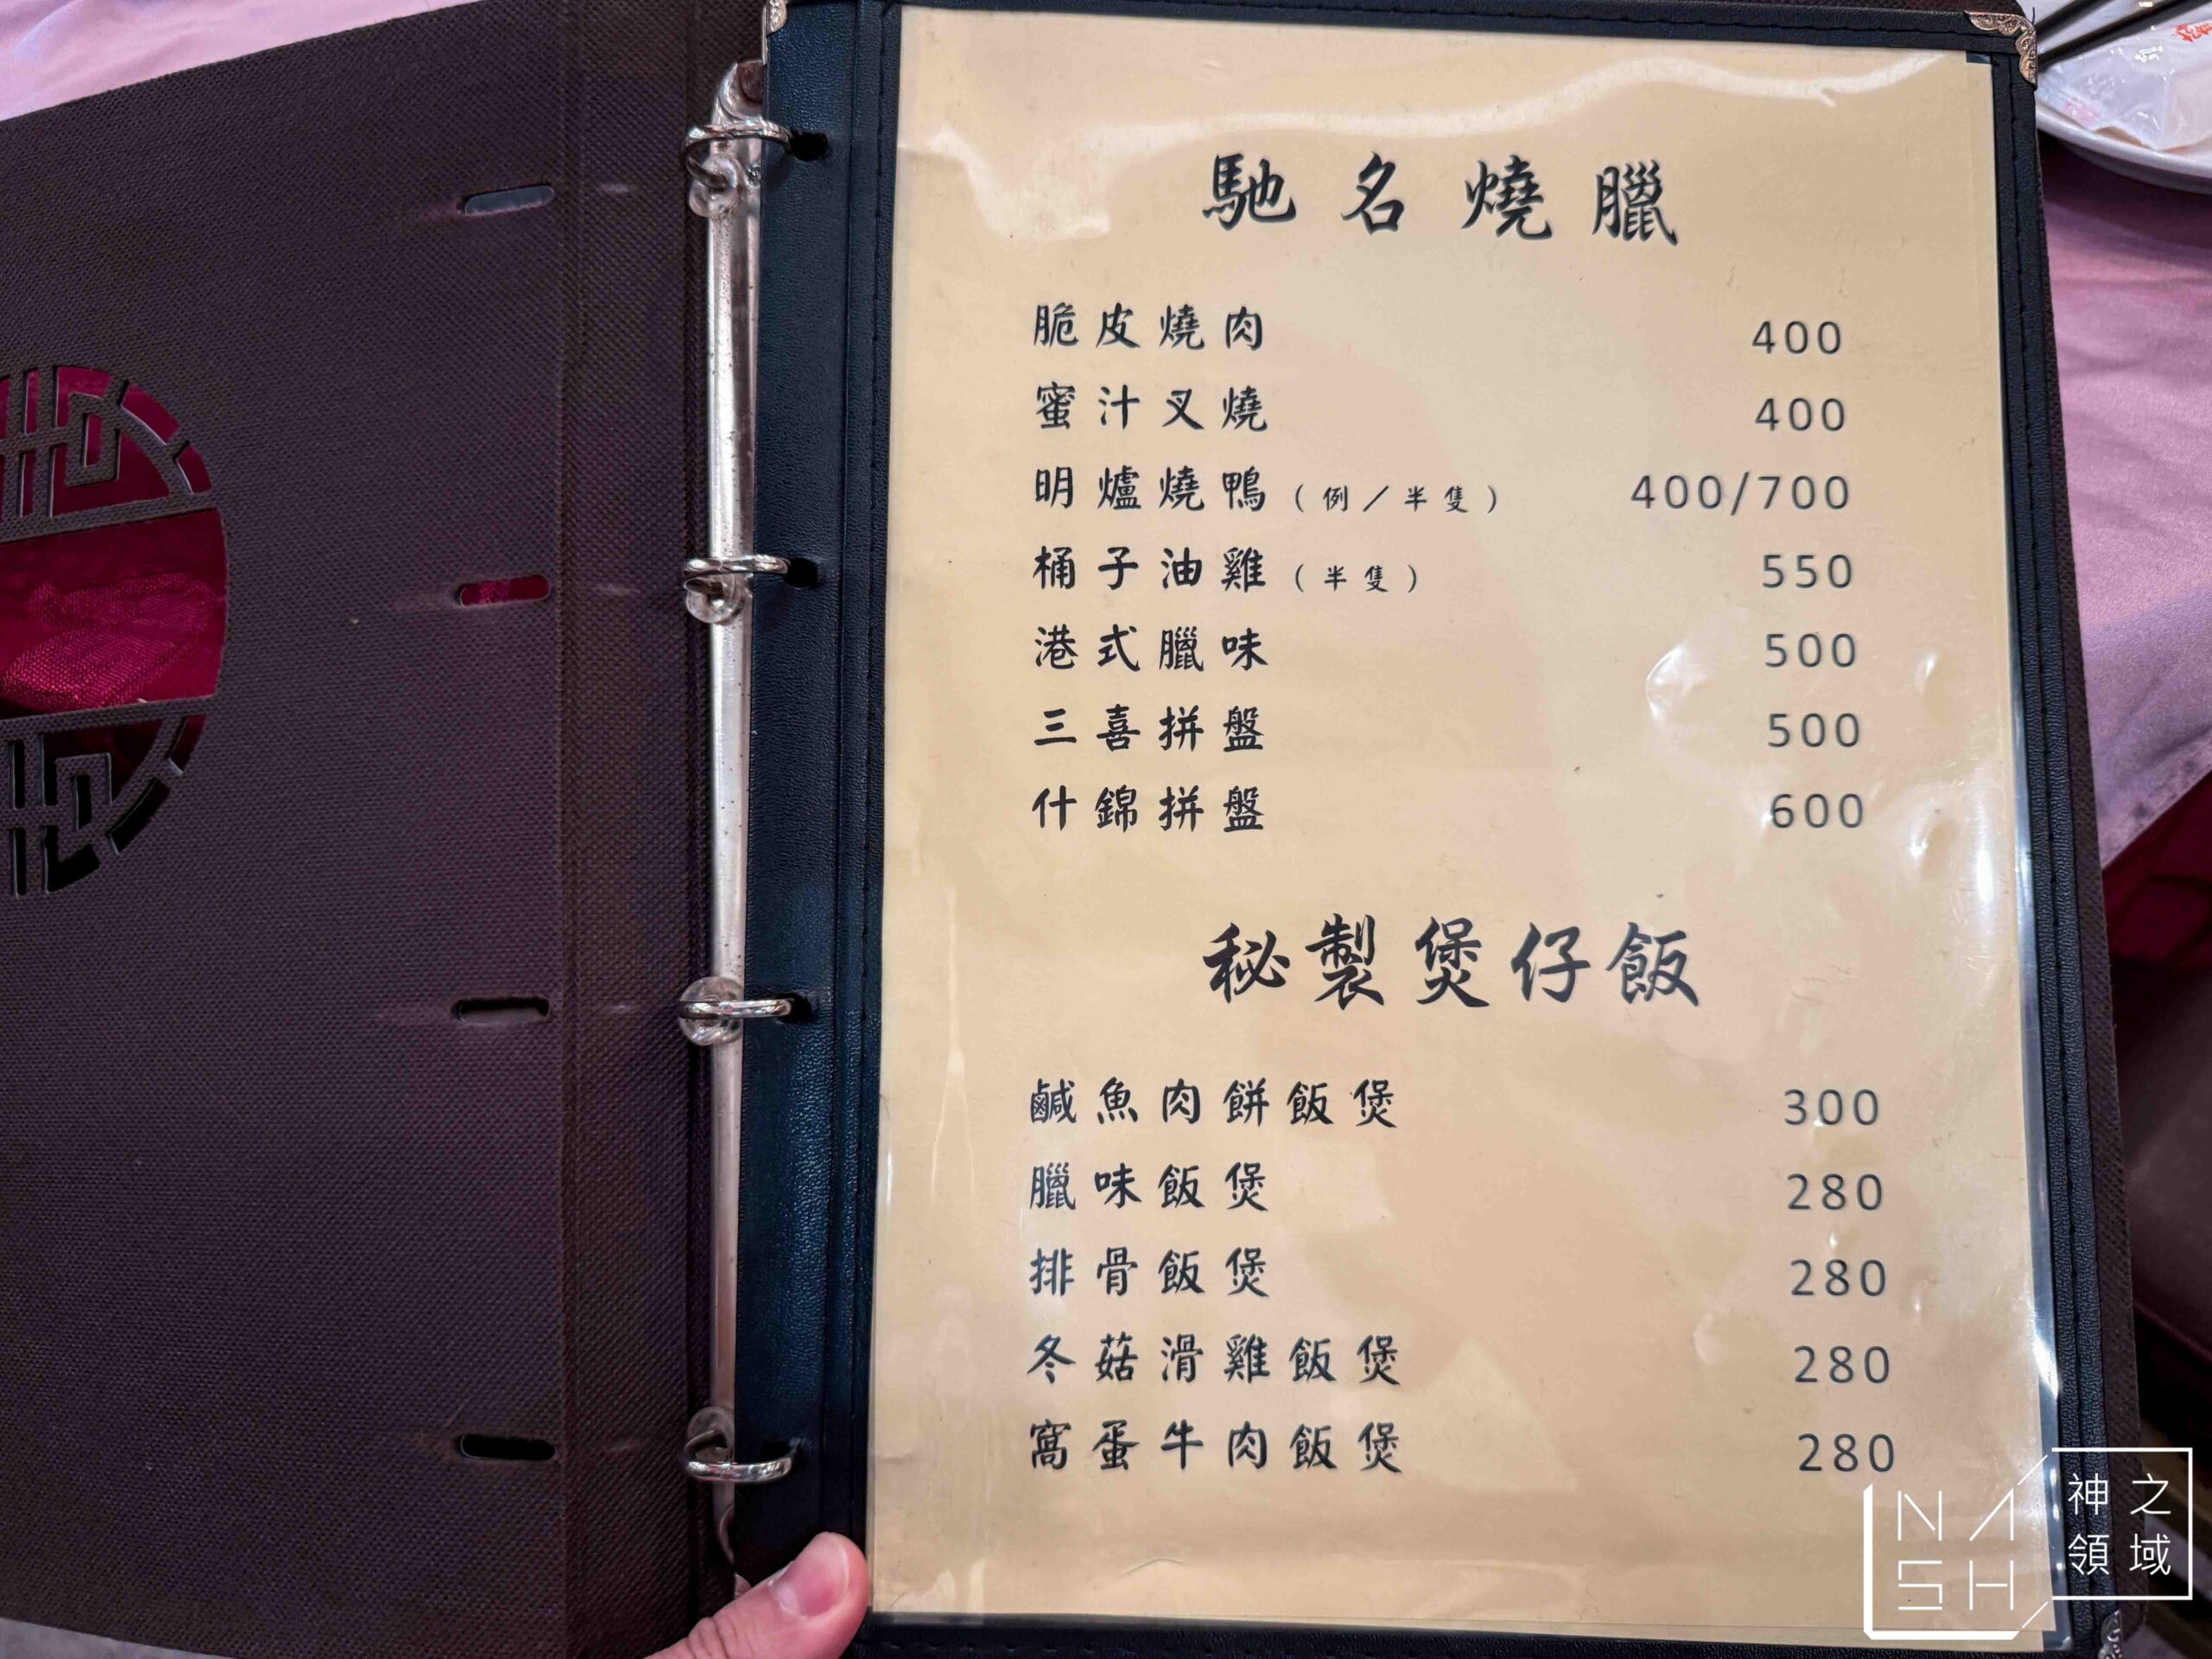 馳名燒臘
脆皮燒肉 400
蜜汁叉燒 400
明爐燒鴨(例/半隻) 400/700
桶子油雞(半隻) 550
港式臘味 500
三喜拼盤 500
什錦拼盤 600
秘製煲仔飯
鹹魚肉餅飯煲 300
臘味飯煲 280
排骨飯煲 280
冬菇滑雞飯煲 280
窩蛋牛肉飯煲 280
NASH
神之
領域